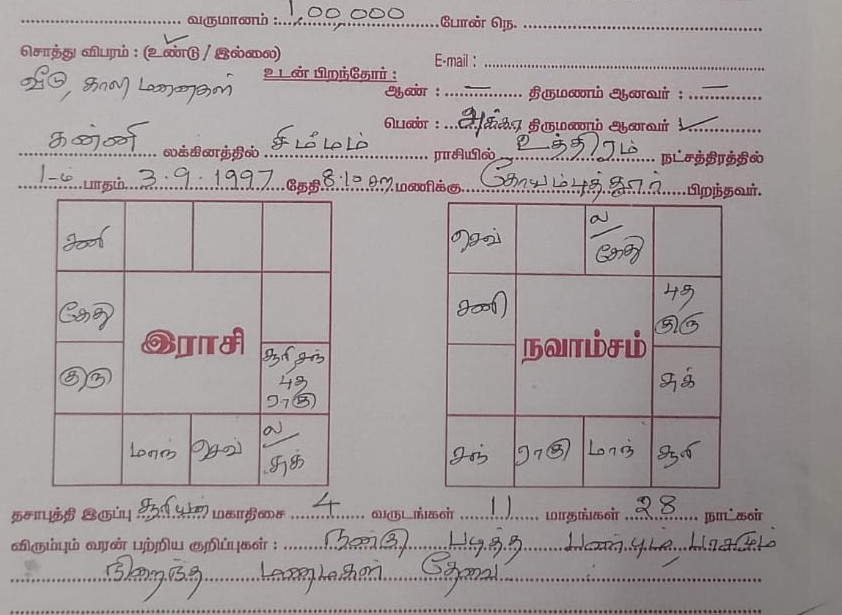 வருமானம் : 1,00,000 போன் நெ.
சொத்து விபரம் : (உண்டு / இல்லை) E-mail :
வீடு, காலி மனைகள் உடன் பிறந்தோர் :
ஆண் : — திருமணம் ஆனவர் : —
பெண் : அக்கா திருமணம் ஆனவர் ✓
கன்னி லக்கினத்தில் சிம்மம் ராசியில் உத்திரம் நட்சத்திரத்தில்
1-ம் பாதம் 3.9.1997 தேதி 8.10 மணிக்கு கோயம்புத்தூர் பிறந்தவர்.
சனி
கேது
குரு
இராசி
சூரி சந்
புத
ராகு
மாந்
செவ்
ல
சுக்
செவ்
ல
கேது
சனி
புத
குரு
நவாம்சம்
சுக்
சந்
ராகு
மாந்
சூரி
தசாபுத்தி இருப்பு சூரியன் மகாதிசை 4 வருடங்கள் 11 மாதங்கள் 28 நாட்கள்
விரும்பும் வரன் பற்றிய குறிப்புகள் : நன்கு படித்த பண்பும், பாசமும்
நிறைந்த மணமகள் தேவை